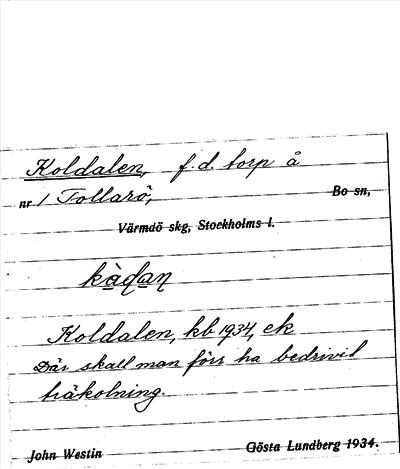 Koldalen, f.d. torp å
nr 1 Tollarö, Bo sn,
Värmdö skg, Stockholms l.
kàdan
Koldalen, kb 1934, ek
Där skall man förr ha bedrivit
träkolning.
John Westin Gösta Lundberg 1934.